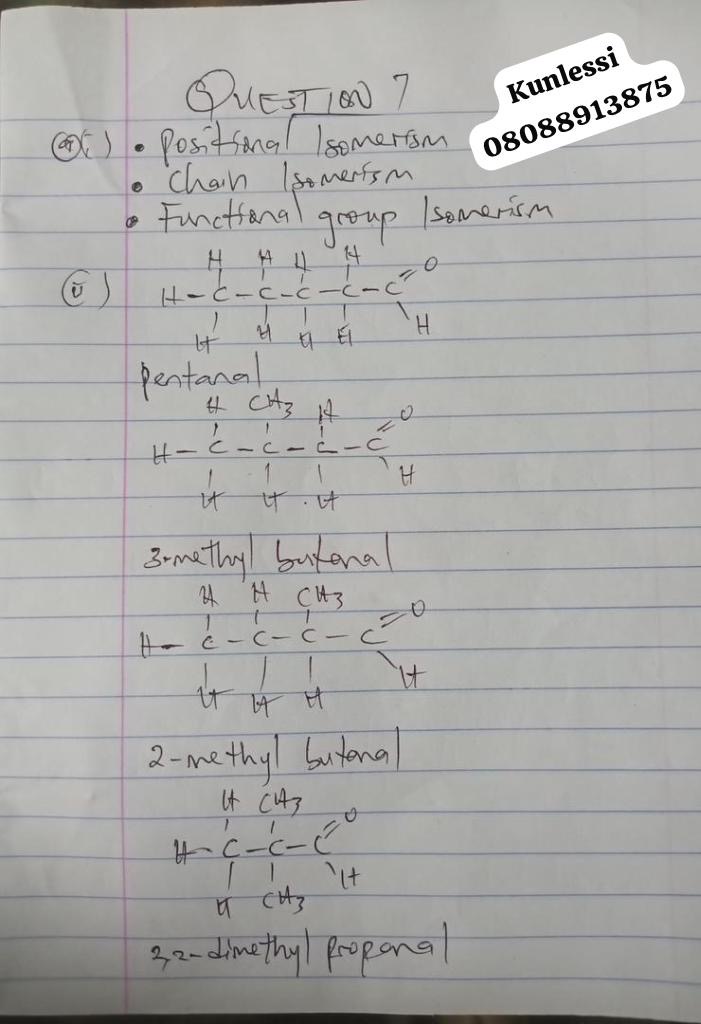 Kunlessi
08088913875
QUESTION 7
(a)(i) • Positional Isomerism
• Chain Isomerism
• Functional group Isomerism
(ii)
H H H H
H-C-C-C-C-C=O
H H H H H
Pentanal
H CH3 H
H-C-C-C-C=O
H H H H
3-methyl butanal
H H CH3
H-C-C-C-C=O
H H H H
2-methyl butanal
H CH3
H-C-C-C=O
H CH3 H
2,2-dimethyl propanal